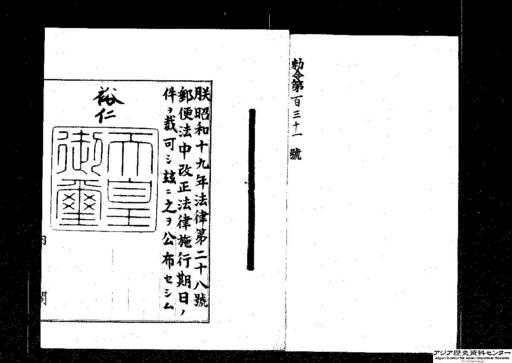 勅令第百三十一號
朕昭和十九年法律第二十八號
郵便法中改正法律施行期日ノ
件ヲ裁可シ玆ニ之ヲ公布セシム
裕仁
天皇
御璽
内閣
アジア歴史資料センター
Japan Center for Asian Historical Records